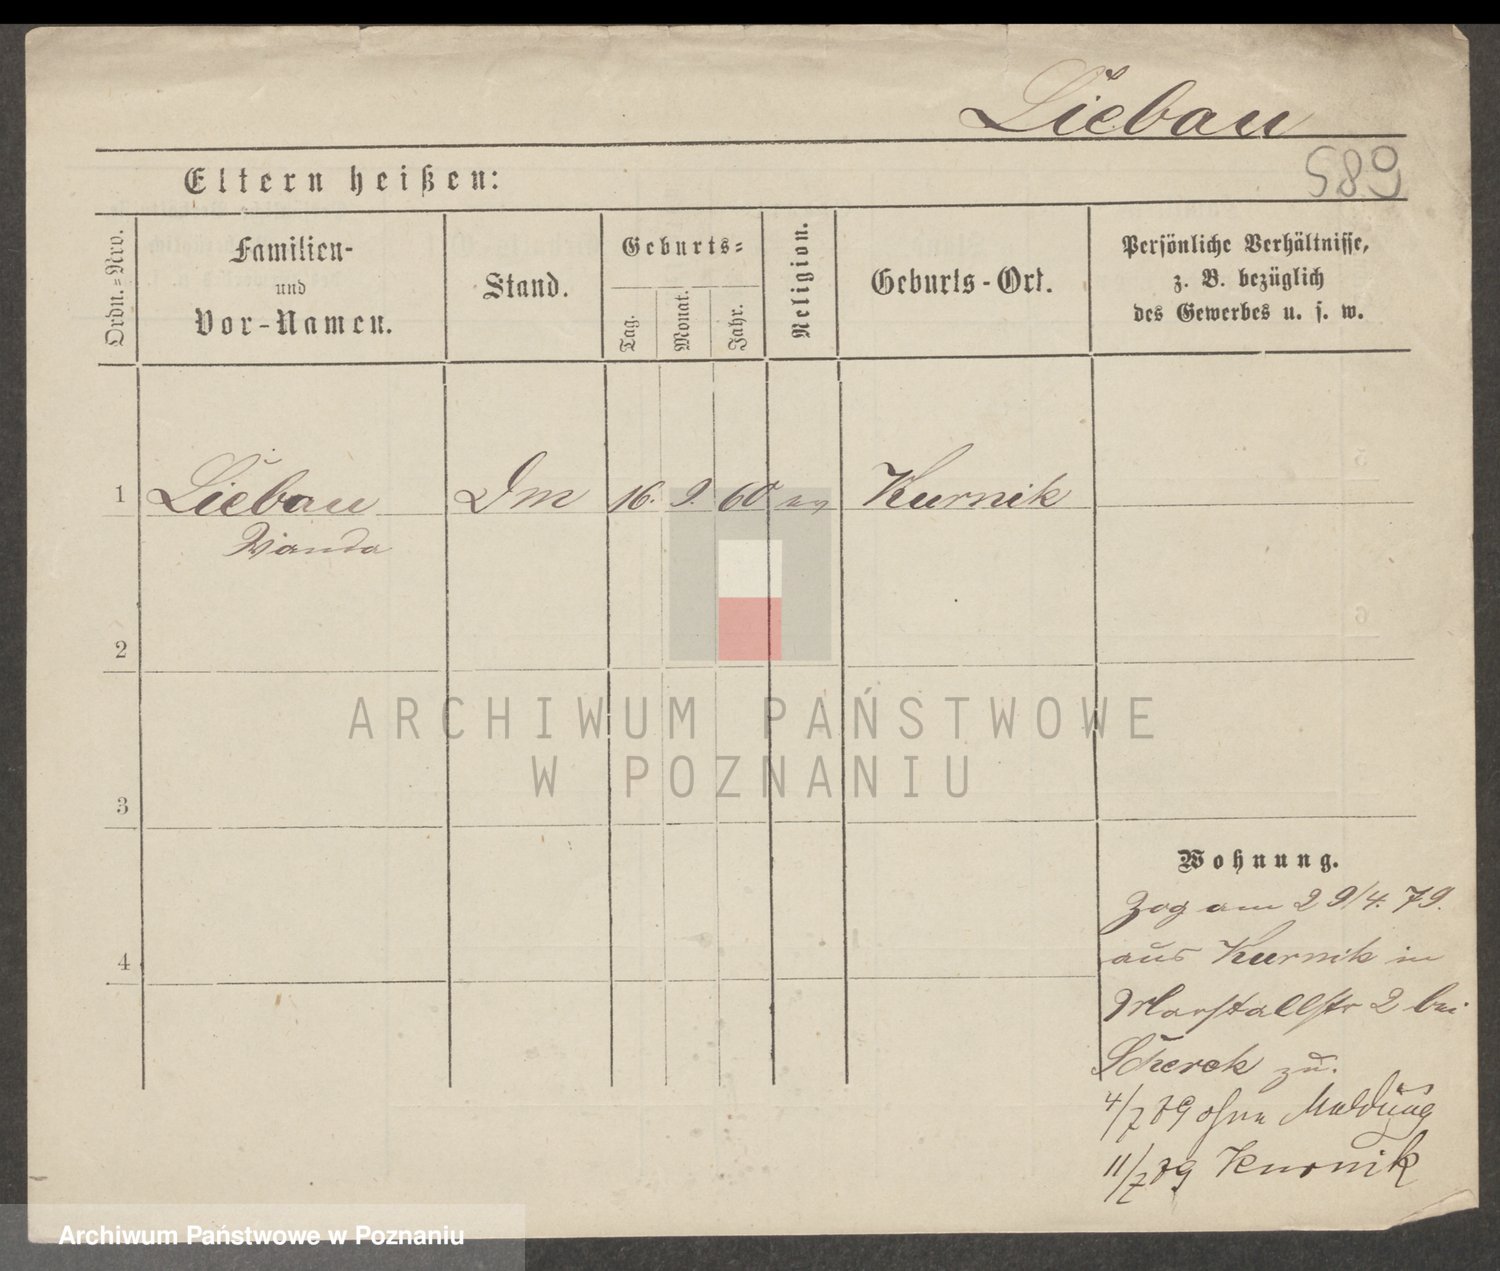 Liebau
589
Eltern heißen:
Ordn.=Nro.
Familien-
und
Vor-Namen.
Stand.
Geburts=
Tag.
Monat.
Jahr.
Religion.
Geburts-Ort.
Persönliche Verhältnisse,
z. B. bezüglich
des Gewerbes u. s. w.
1 Liebau Dm 16. 9. 60 ev Kurnik
Wanda
2
3
4
ARCHIWUM PAŃSTWOWE
W POZNANIU
Wohnung.
Zog am 29/4. 79.
aus Kurnik in
Marstallstr 2 bei
Scherek zu.
4/7 79 ohne Meldung
11/7 79 Kurnik
Archiwum Państwowe w Poznaniu